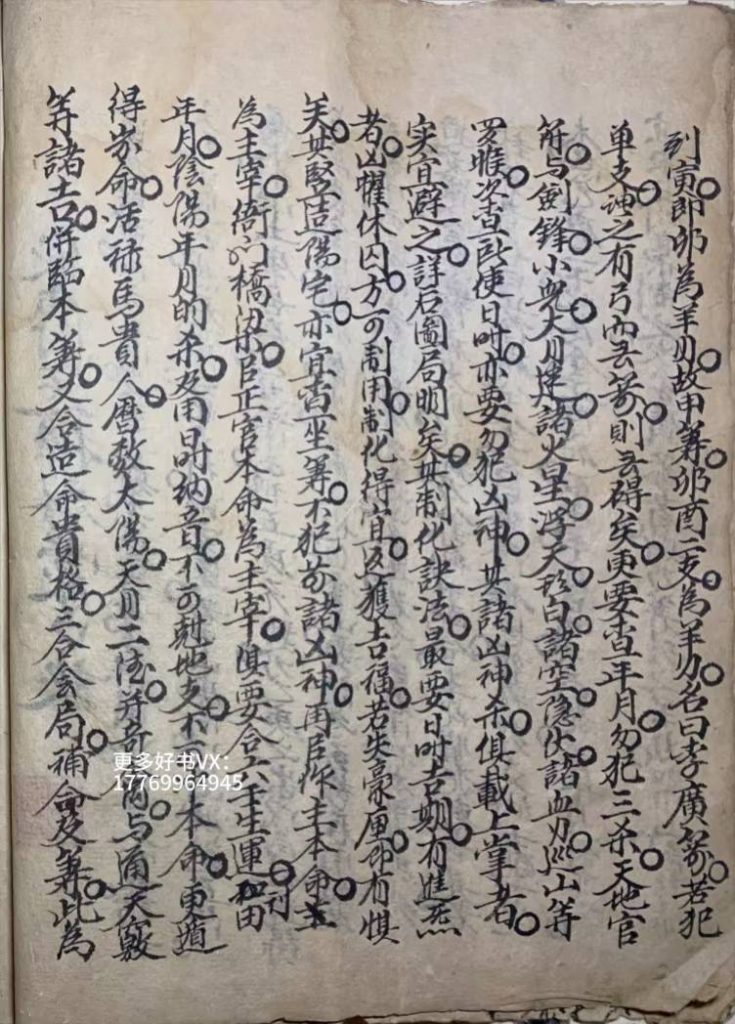 到寅即卯為羊刃故甲筭卯酉二支為羊刃名曰李廣箭若犯
單支神之有弓內無箭則無碍矣更要查年月勿犯三杀天地官
符与劍鋒小児大月建諸火星浮天形白諸空隐伏諸血刃巡山等
罗帐次查所使日时亦要勿犯凶神其諸凶神杀俱載上掌者
实宜避之詳后圖局明矣其制化訣法最要日时吉期有進気
者凶懼休囚方可制用制化得宜返獲吉福若失毫厘即有惧
关其竪造陽宅亦宜查坐筭不犯於諸凶神再后 主本命主
為主宰衙门橋梁后正官本命為主宰俱要合六壬生運和田
年月陰陽年月的杀及用日时納音不可尅地支不 本命更遁
得岁命活禄馬貴人曆数太陽天月二德并 与通天竅
等諸吉併臨本筭又合造命貴格三合会局補命及筭此為
更多好书VX:
17769964945